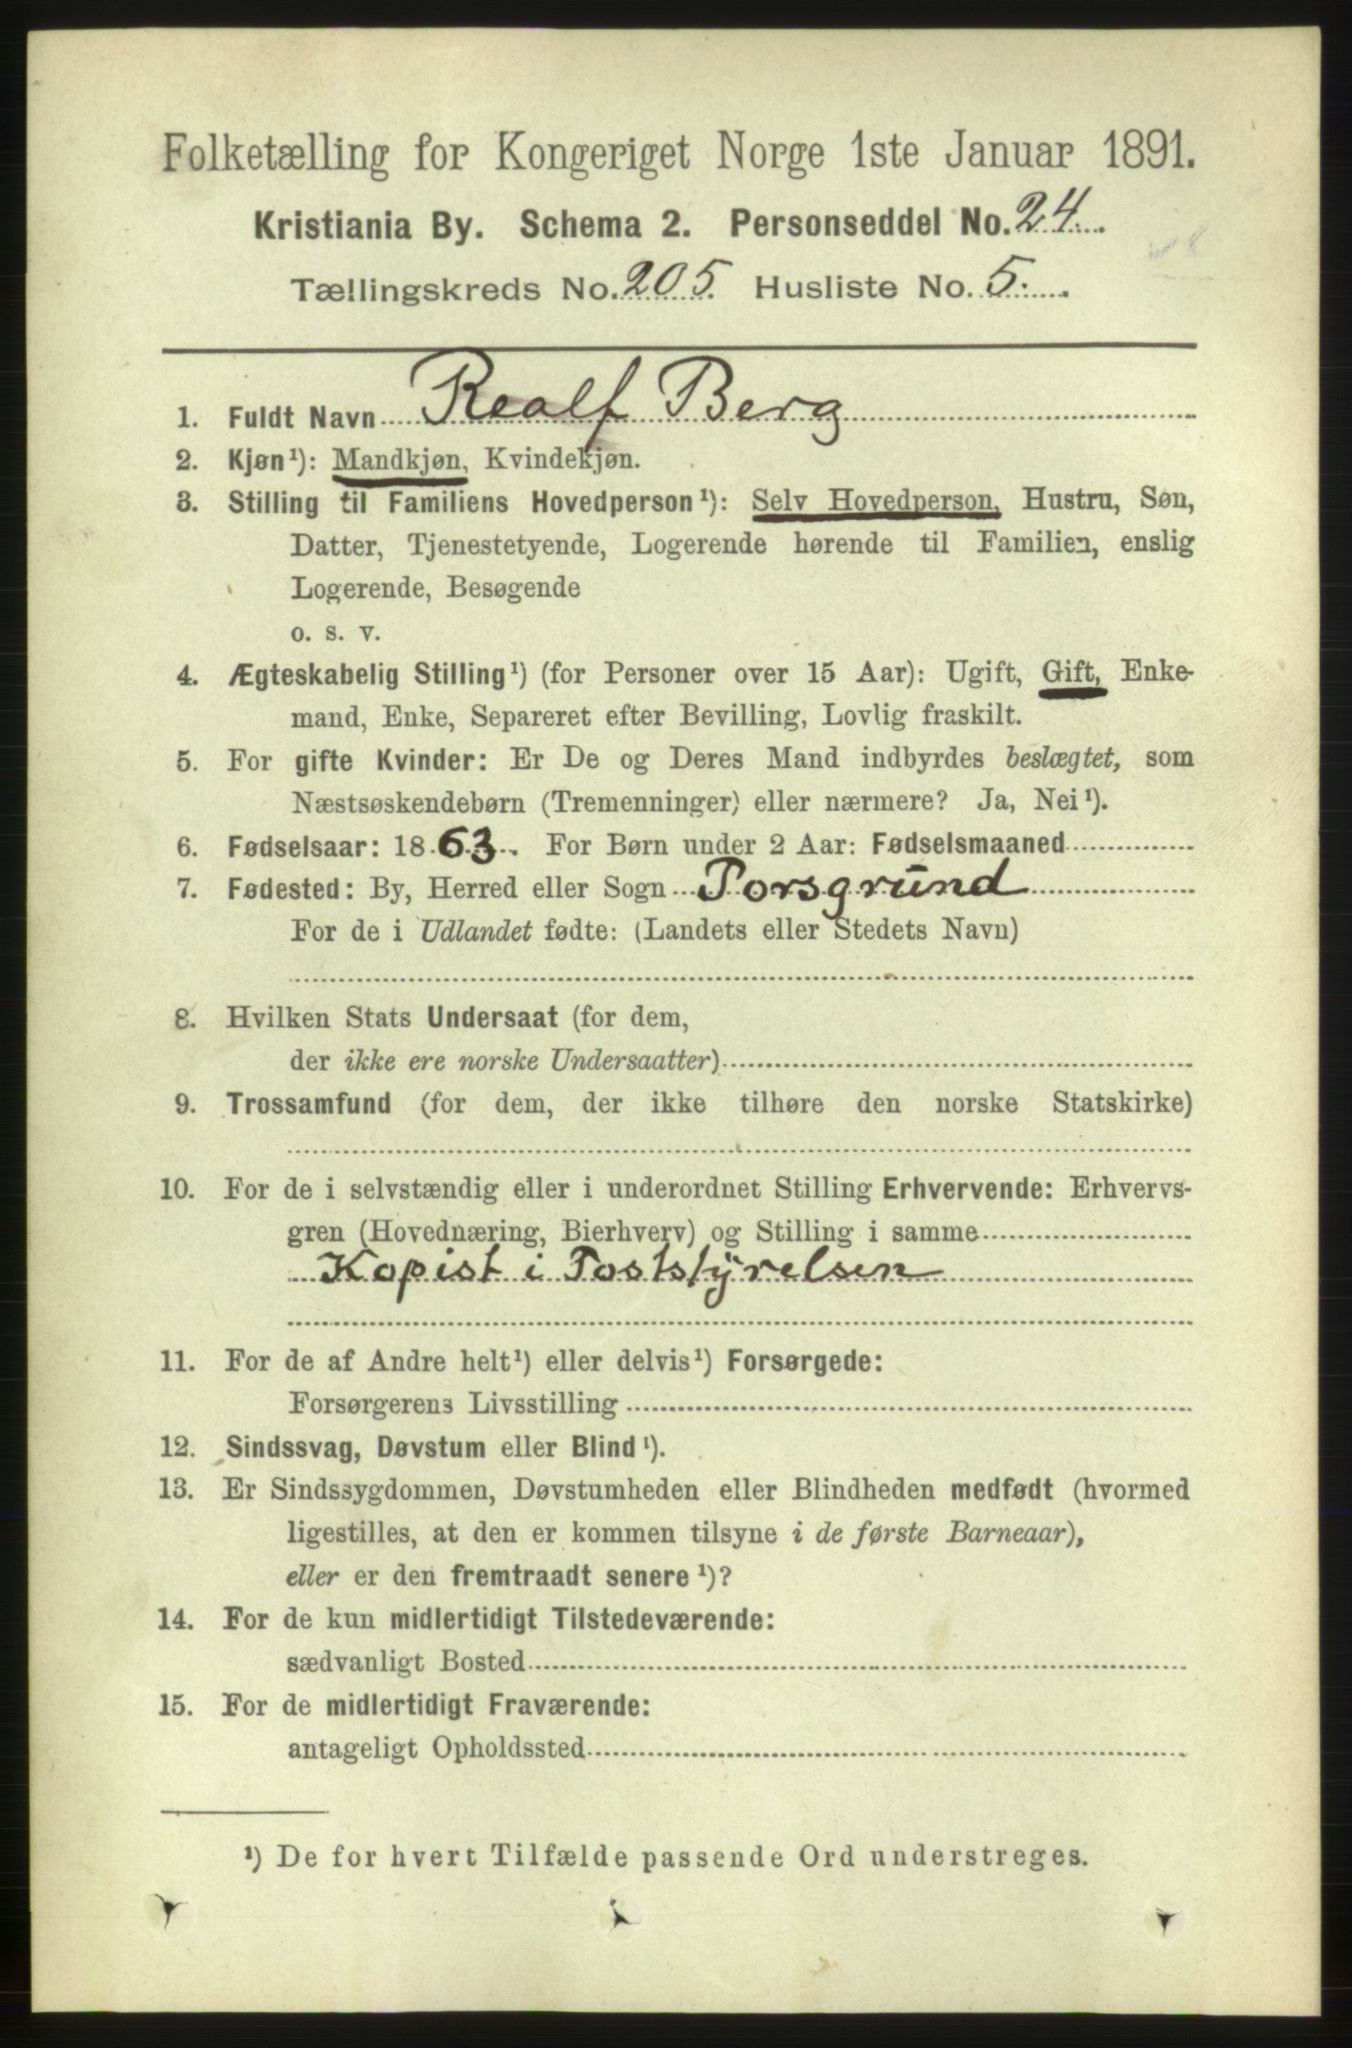 Folketælling for Kongeriget Norge 1ste Januar 1891.
Kristiania By. Schema 2. Personseddel No. 24.
Tællingskreds No. 205. Husliste No. 5.
1. Fuldt Navn Realf Berg
2. Kjøn¹): Mandkjøn, Kvindekjøn.
3. Stilling til Familiens Hovedperson¹): Selv Hovedperson, Hustru, Søn,
Datter, Tjenestetyende, Logerende hørende til Familien, enslig
Logerende, Besøgende
o. s. v.
4. Ægteskabelig Stilling¹) (for Personer over 15 Aar): Ugift, Gift, Enke-
mand, Enke, Separeret efter Bevilling, Lovlig fraskilt.
5. For gifte Kvinder: Er De og Deres Mand indbyrdes beslægtet, som
Næstsøskendebørn (Tremenninger) eller nærmere? Ja, Nei¹).
6. Fødselsaar: 1863. For Børn under 2 Aar: Fødselsmaaned
7. Fødested: By, Herred eller Sogn Porsgrund
For de i Udlandet fødte: (Landets eller Stedets Navn)
8. Hvilken Stats Undersaat (for dem,
der ikke ere norske Undersaatter)
9. Trossamfund (for dem, der ikke tilhøre den norske Statskirke)
10. For de i selvstændig eller i underordnet Stilling Erhvervende: Erhvervs-
gren (Hovednæring, Bierhverv) og Stilling i samme
Kopist i Poststyrelsen
11. For de af Andre helt¹) eller delvis¹) Forsørgede:
Forsørgerens Livsstilling
12. Sindssvag, Døvstum eller Blind¹).
13. Er Sindssygdommen, Døvstumheden eller Blindheden medfødt (hvormed
ligestilles, at den er kommen tilsyne i de første Barneaar),
eller er den fremtraadt senere¹)?
14. For de kun midlertidigt Tilstedeværende:
sædvanligt Bosted
15. For de midlertidigt Fraværende:
antageligt Opholdssted
¹) De for hvert Tilfælde passende Ord understreges.